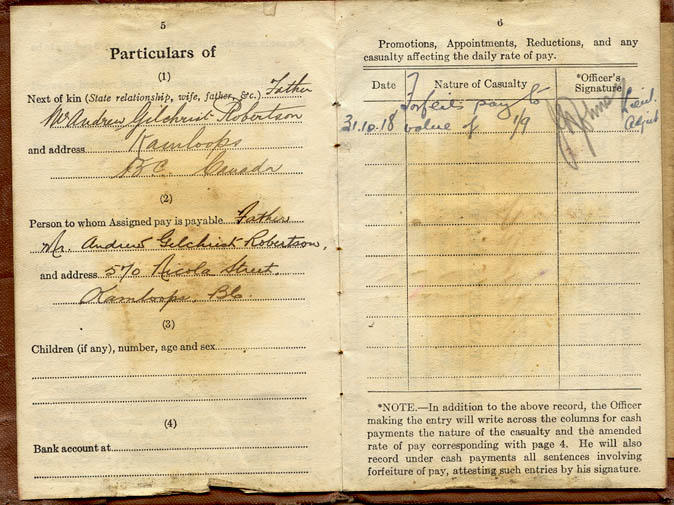 5
Particulars of
(1)
Next of kin (State relationship, wife, father, &c.) Father
Mr Andrew Gilchrist Robertson
and address Kamloops
B.C. Canada
(2)
Person to whom Assigned pay is payable Father
Mr. Andrew Gilchrist Robertson,
and address 570 Nicola Street,
Kamloops, B.C.
(3)
Children (if any), number, age and sex
(4)
Bank account at
6
Promotions, Appointments, Reductions, and any
casualty affecting the daily rate of pay.
Date Nature of Casualty *Officer's
Signature
Forfeits pay to
31.10.18 value of 1/9
Lieut.
Adjut
*NOTE.—In addition to the above record, the Officer
making the entry will write across the columns for cash
payments the nature of the casualty and the amended
rate of pay corresponding with page 4. He will also
record under cash payments all sentences involving
forfeiture of pay, attesting such entries by his signature.